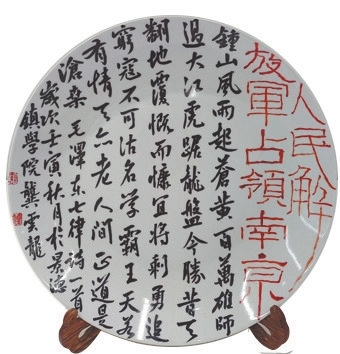 人民解
放軍占領南京
鍾山風雨起蒼黄百萬雄師
過大江虎踞龍盤今勝昔天
翻地覆慨而慷宜將剩勇追
窮寇不可沽名學霸王天若
有情天亦老人間正道是
滄桑 毛澤東七律詩一首
歲次壬寅秋月於景德
鎮學院龔雲龍